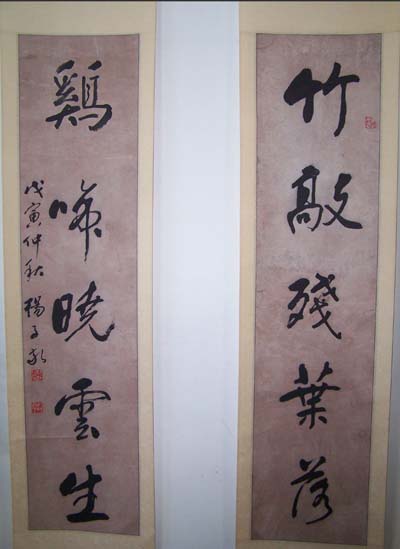 竹敲殘葉落
鷄啼曉雲生
戊寅仲秋 楊子敬